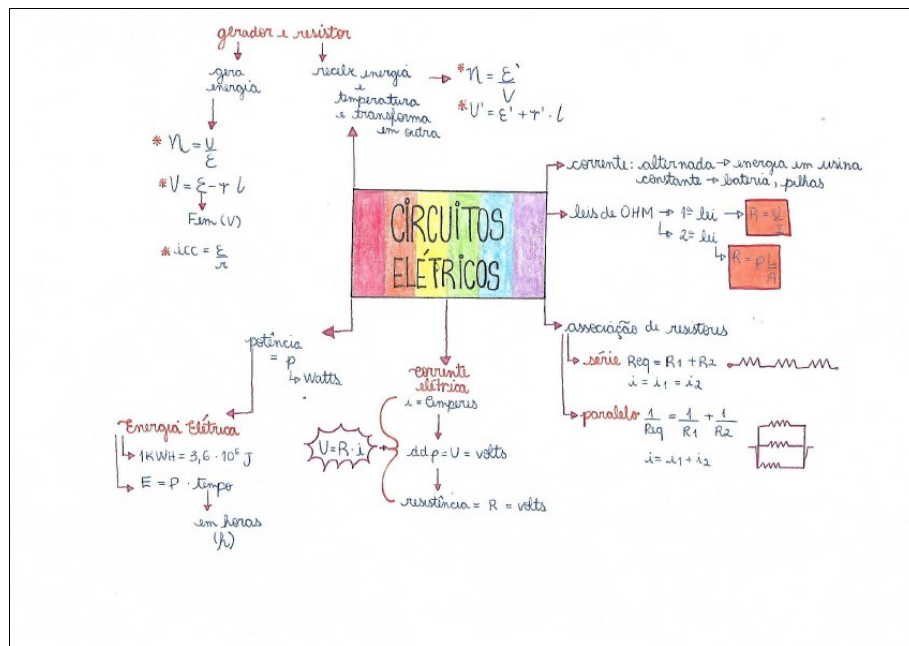 gerador e resistor
gera
energia
* η = U/ε
* V = ε - r i
Fem (V)
* icc = ε/r
recebe energia
e
temperatura
e transforma
em outra
* η = ε'/V
* V' = ε' + r' · i
CIRCUITOS
ELÉTRICOS
corrente: alternada → energia em usina
constante → bateria, pilhas
leis de OHM → 1ª lei → R = U/I
2ª lei
R = ρL/A
associação de resistores
série Req = R1 + R2
i = i1 = i2
paralelo 1/Req = 1/R1 + 1/R2
i = i1 + i2
potência
= p
Watts
Energia Elétrica
1KWH = 3,6 · 10⁶ J
E = P · tempo
em horas
(h)
corrente
elétrica
i = Amperes
U = R · i
ddp = U = volts
resistência = R = volts